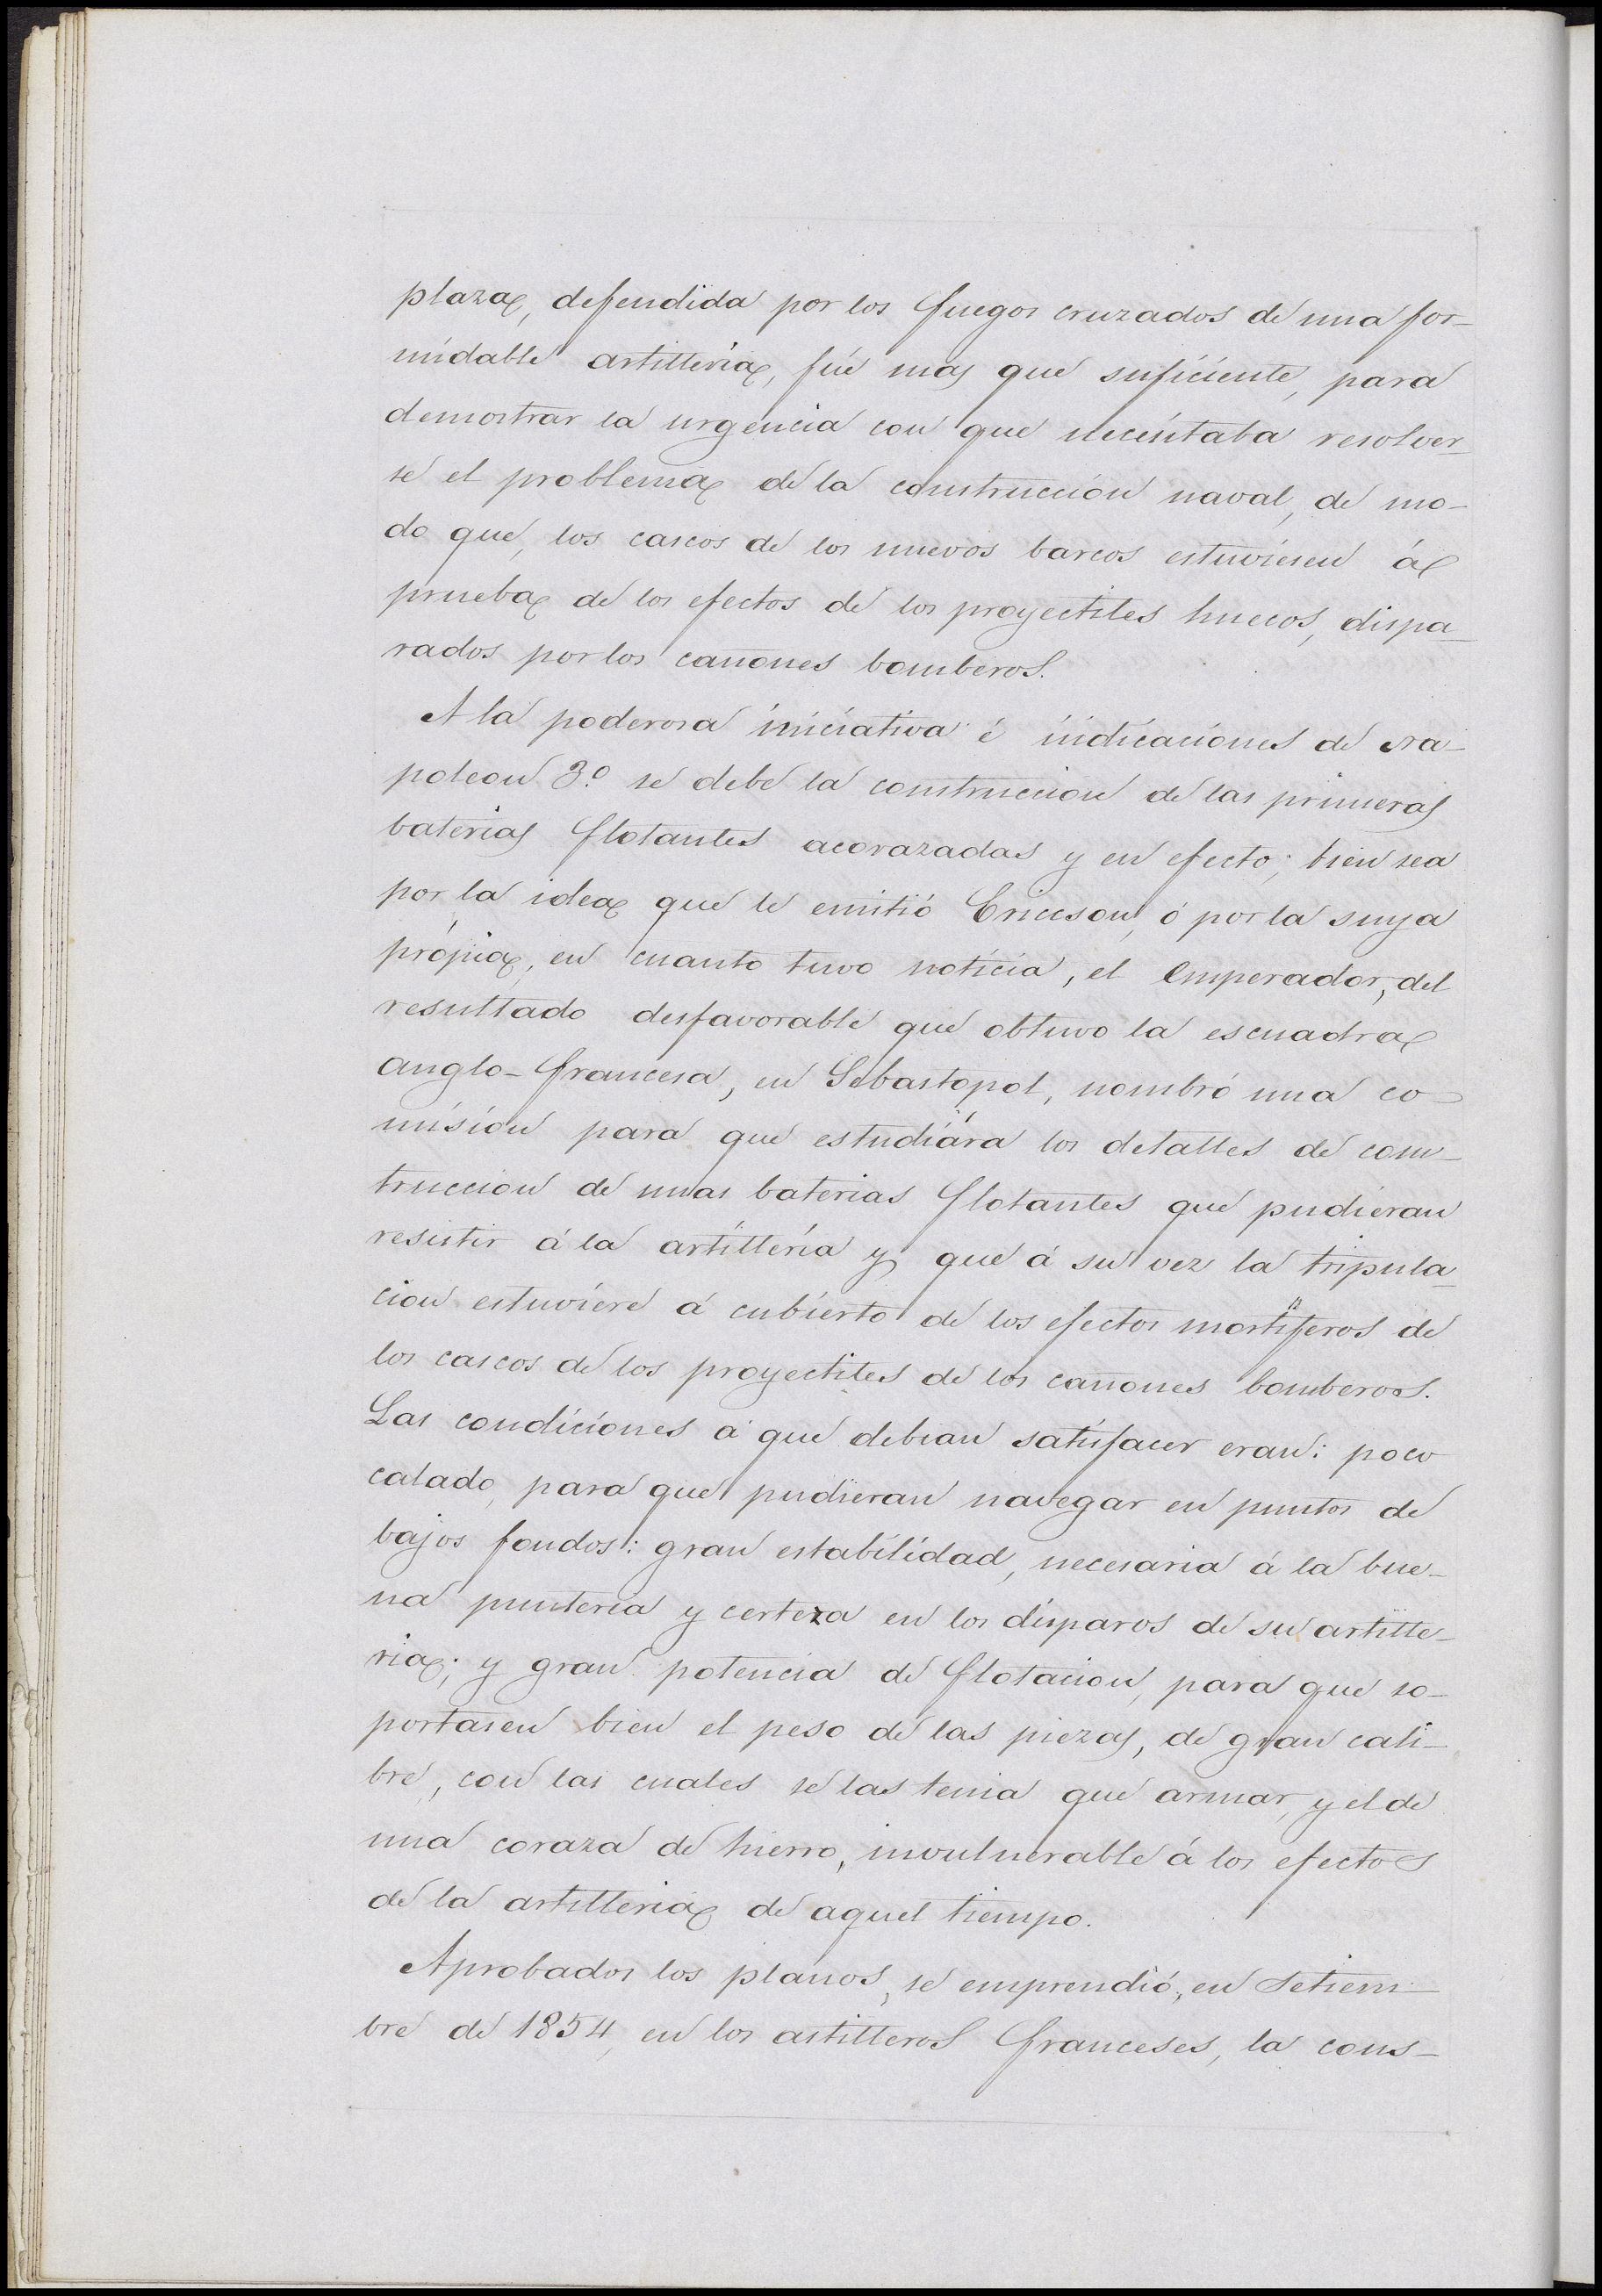 plaza, defendida por los fuegos cruzados de una for-
midable artilleria, fué mas que suficiente, para
demostrar la urgencia con que necesitaba resolver-
se el problema de la construccion naval, de mo-
do que, los cascos de los nuevos barcos estuviesen á
prueba de los efectos de los proyectiles huecos, dispa-
rados por los cañones bomberos.
A la poderosa iniciativa é indicaciones de Na-
poleon 3.º se debe la construccion de las primeras
baterias flotantes acorazadas y en efecto; bien sea
por la idea que le emitió Ericson, ó por la suya
própia, en cuanto tuvo noticia, el emperador, del
resultado desfavorable que obtuvo la escuadra
anglo-francesa, en Sebastopol, nombró una co-
misión para que estudiára los detalles de cons-
truccion de unas baterias flotantes que pudieran
resistir á la artillería y que á su vez la tripula-
cion estuviere á cubierto de los efectos mortiferos de
los cascos de los proyectiles de los cañones bomberos.
Las condiciones á que debian satisfacer eran: poco
calado, para que pudieran navegar en puntos de
bajos fondos: gran estabilidad, necesaria á la bue-
na punteria y certeza en los disparos de su artille-
ria; y gran potencia de flotacion, para que so-
portasen bien el peso de las piezas, de gran cali-
bre, con las cuales se las tenia que armar, y el de
una coraza de hierro, invulnerable á los efectos
de la artilleria de aquel tiempo.
Aprobados los planos, se emprendió, en Setiem-
bre de 1854, en los astilleros franceses, la cons-